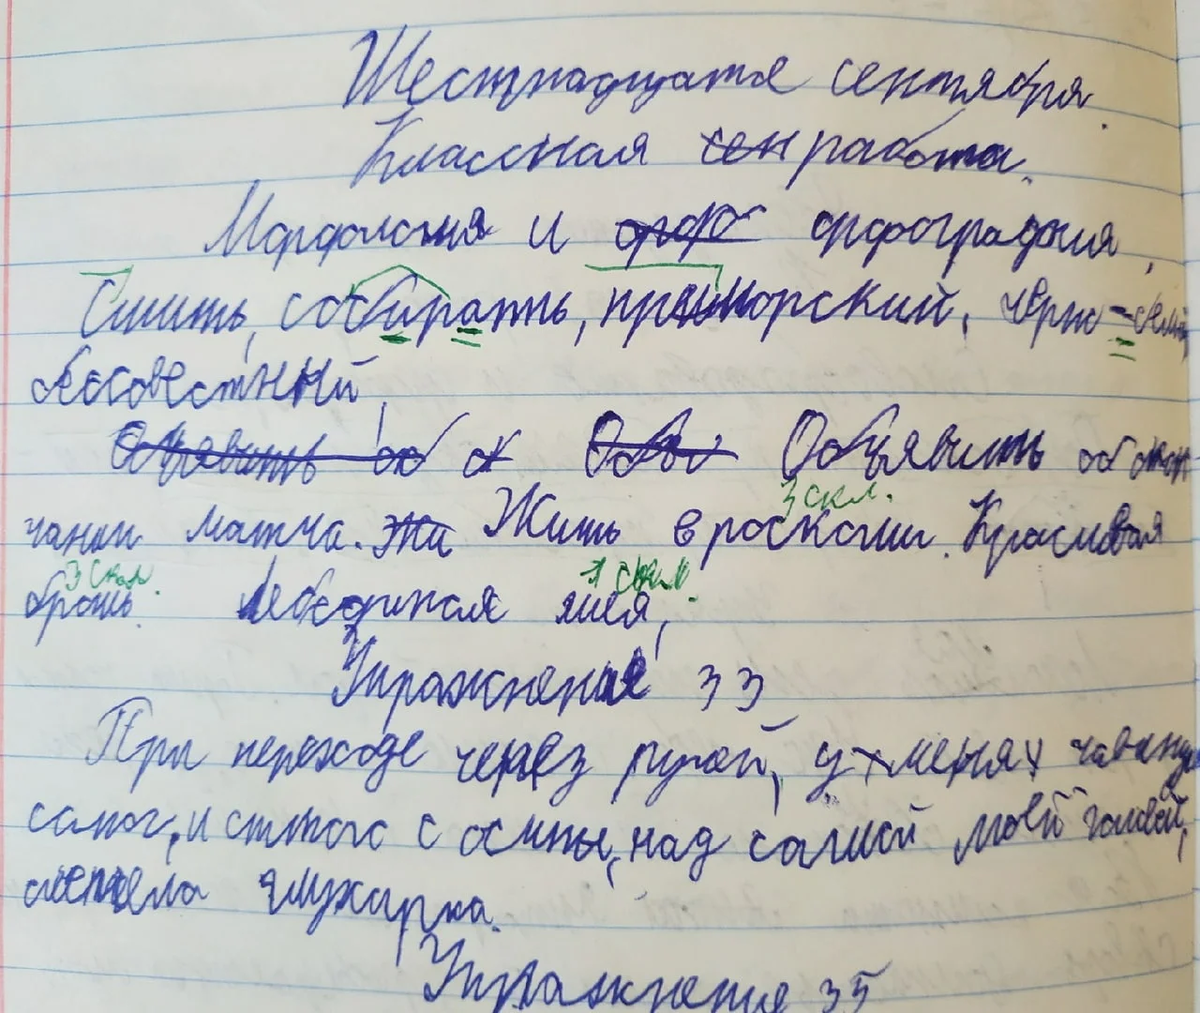 Шестнадцатое сентября.
Классная сен работа.
Морфология и орфо орфография.
Сшить, собирать, приморский, чёрно-белый,
бессовестный.
Объявить об о Объя Объявить об окон
3 скл.
чании матча. Жи Жить в роскоши. Красивая
3 скл. 1 скл.
брошь. Лебединая шея.
Упражнение 33
При переходе через ручей, у меня чавкнул
сапог, и с того с осины, над самой моей головой,
слетела глухарка.
Упражнение 35